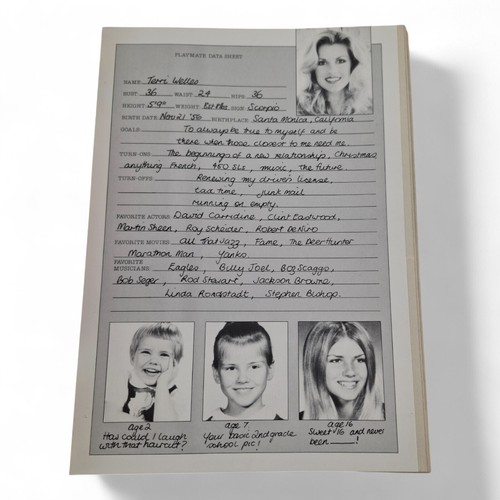 PLAYMATE DATA SHEET
NAME: Terri Welles
BUST: 36 WAIST: 24 HIPS: 36
HEIGHT: 5'9" WEIGHT: SIGN: Scorpio
BIRTH DATE: Nov 21 '56 BIRTHPLACE: Santa Monica, California
GOALS: To always be true to myself and be
there when those closest to me need me.
TURN-ONS: The beginnings of a new relationship, Christmas,
anything French, 450 SLs, music, the future.
TURN-OFFS: Renewing my driver's license,
tax time, junk mail
running on empty.
FAVORITE ACTORS: David Carridine, Clint Eastwood,
Martin Sheen, Roy Scheider, Robert DeNiro
FAVORITE MOVIES: All That Jazz, Fame, The Deer Hunter
Marathon Man, Yanks.
FAVORITE
MUSICIANS: Eagles, Billy Joel, Boz Scaggs,
Bob Seger, Rod Stewart, Jackson Browne,
Linda Ronstadt, Stephen Bishop.
age 2
How could I laugh
with that haircut?
age 7
Your basic 2nd grade
school pic!
age 16
Sweet 16 and never
been ____!